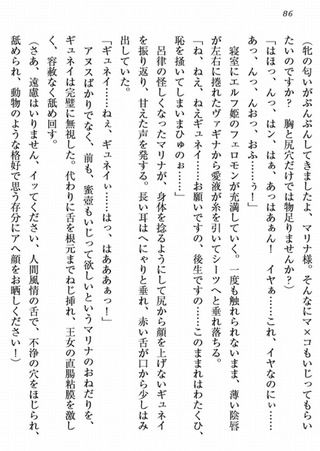 86
（牝の匂いがぷんぷんしてきましたよ、マリナ様。そんなにマ×コもいじってもらい
たいのですか？　胸と尻穴だけでは物足りませんか？）
「はほっ、んっ、はン、はぁ、あっはあぁん！　イヤぁ……これ、イヤなのにぃ……
あっ、んっ、んおっ、おふ……ぅ！」
　寝室にエルフ姫のフェロモンが充満していく。一度も触れられないまま、薄い陰唇
が左右に捲れたヴァギナから愛液が糸を引いてシーツへと垂れ落ちる。
「ね、ねえ、ねえギュネイ……お願いですの、後生ですの……このままれはわたくひ、
恥を掻いてしまいまひゅのぉ……」
　呂律の怪しくなったマリナが、身体を捻るようにして尻から顔を上げないギュネイ
を振り返り、甘えた声を発する。長い耳はへにゃりと垂れ、赤い舌が口から少しはみ
出していた。
「ギュネイ……ねぇ、ギュネイぃ……はっ、はあああぁっ！」
　アヌスばかりでなく、前も、蜜壺もいじって欲しいというマリナのおねだりを、
ギュネイは完璧に無視した。代わりに舌を根元までねじ挿れ、王女の直腸粘膜を激し
く、容赦なく舐め回す。
（さあ、遠慮はいりません、イッてください、人間風情の舌で、不浄の穴をほじられ、
舐められ、動物のような格好で思う存分にアヘ顔をお晒しください！）